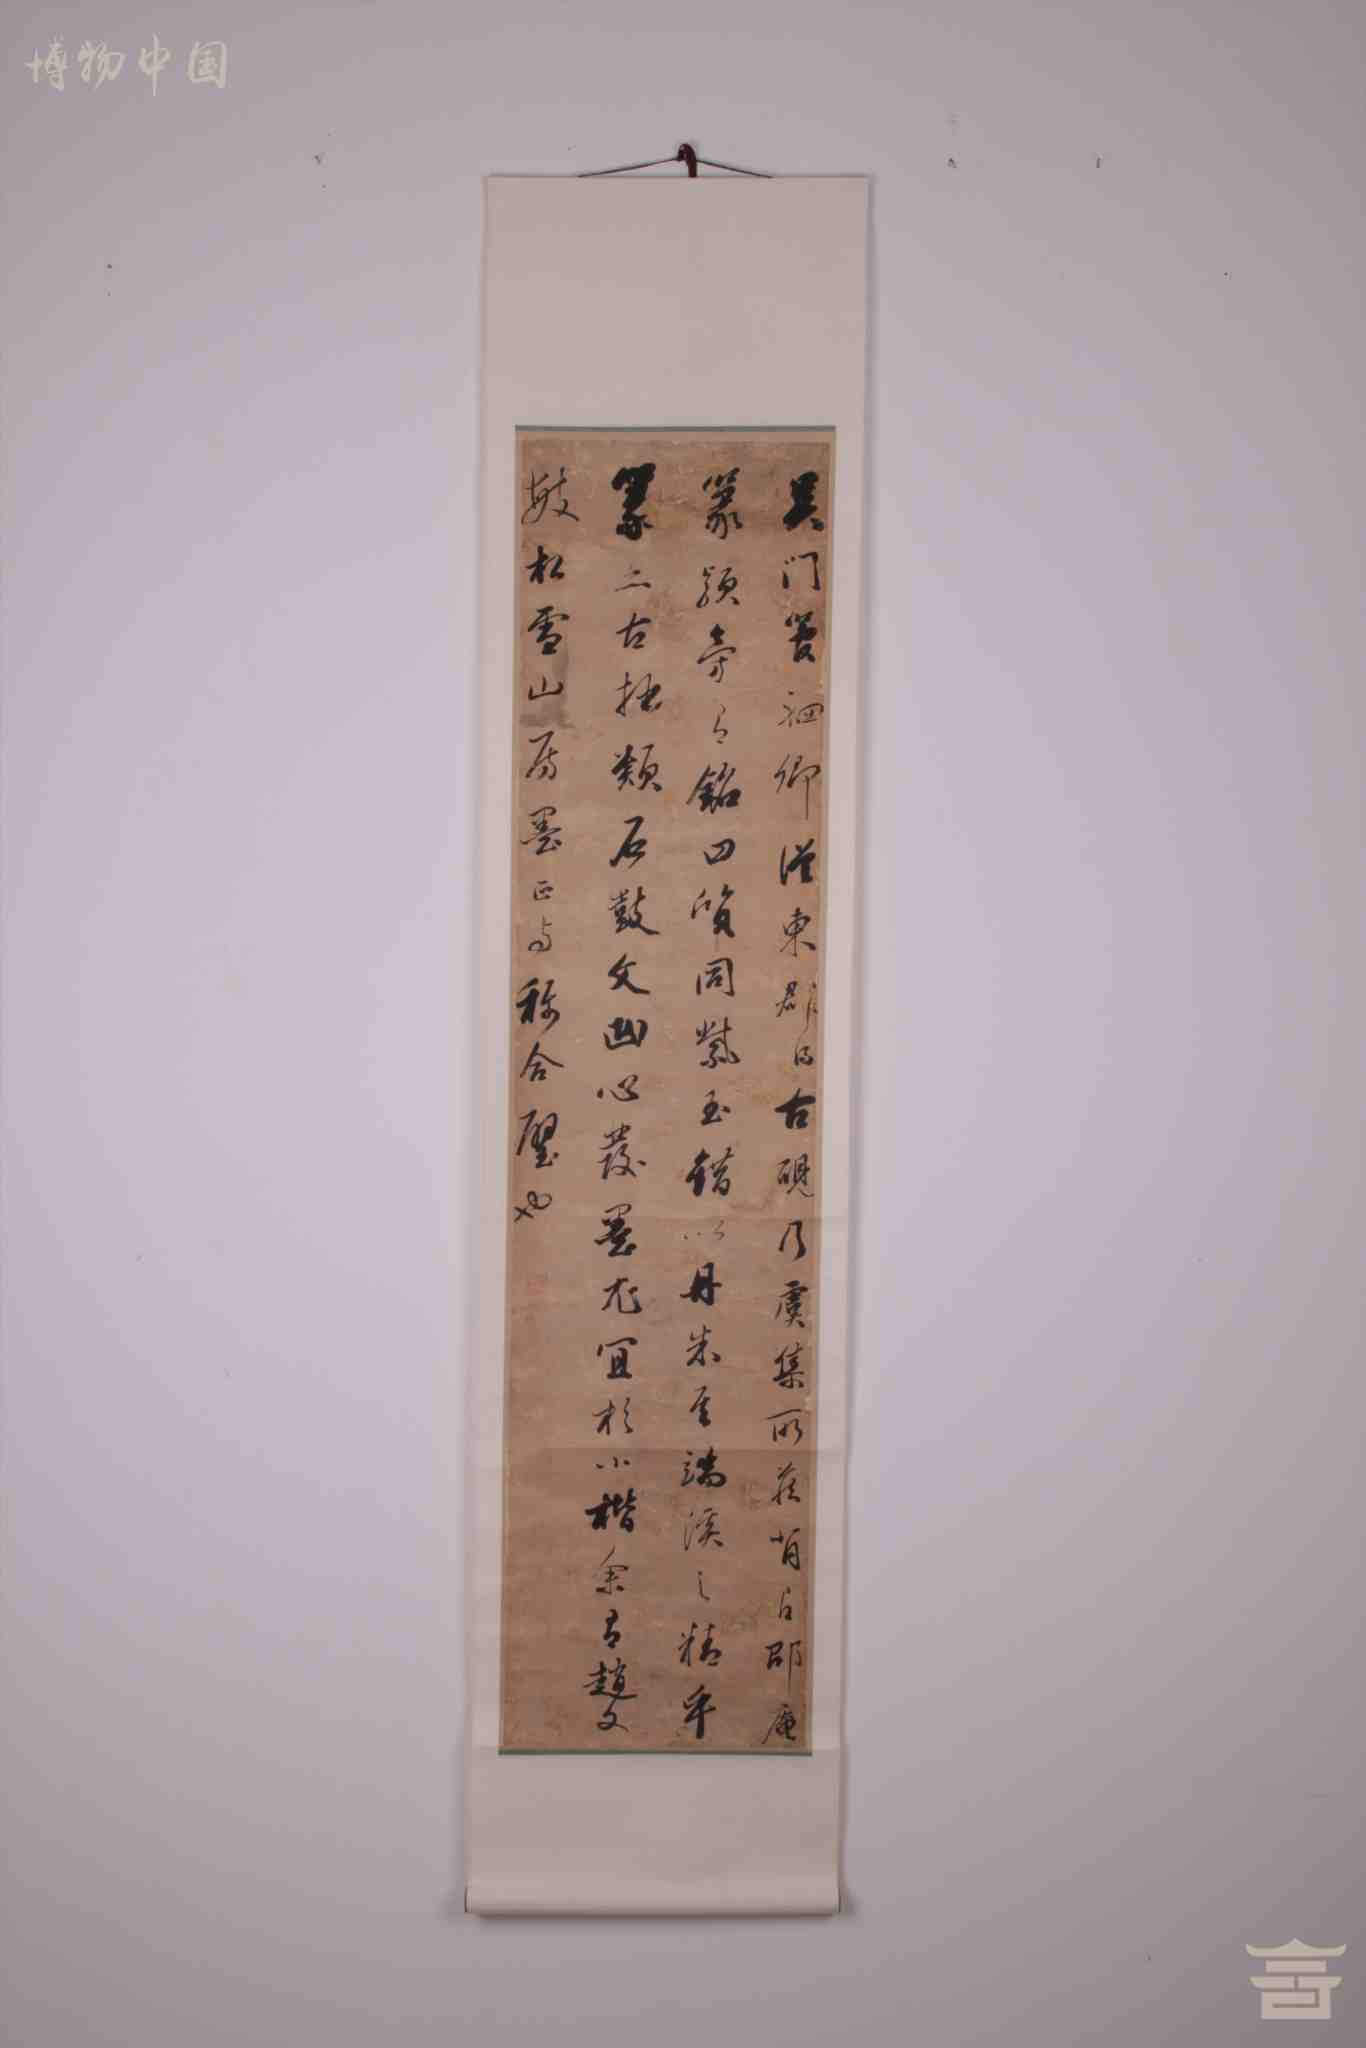 博物中国
吴门管嗣卿从东郡得古砚乃虞集所藏背有邵庵
篆额旁有铭曰质同紫玉错以丹朱是端溪之精乎
篆亦古拙类石鼓文幽心发墨尤宜于小楷余有赵文
敏松雪山房墨正可称合璧也